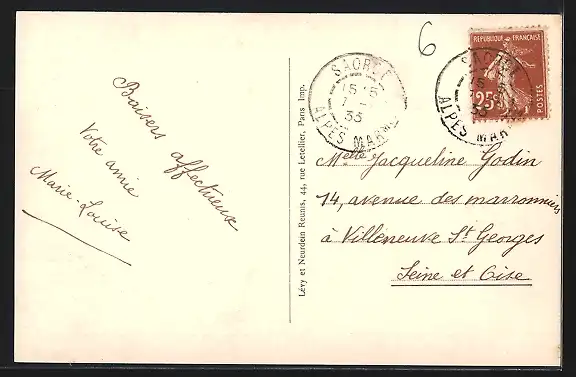 Baisers affectueux
Votre amie
Marie-Louise
Lévy et Neurdein Reunis, 44, rue Letellier, Paris Imp.
6
SAORGE
15 15
7
33
ALPES MARMES
REPUBLIQUE FRANÇAISE
25c
POSTES
ALPES MAR
Melle Jacqueline Godin
14, avenue des marronniers
à Villeneuve St Georges
Seine et Oise